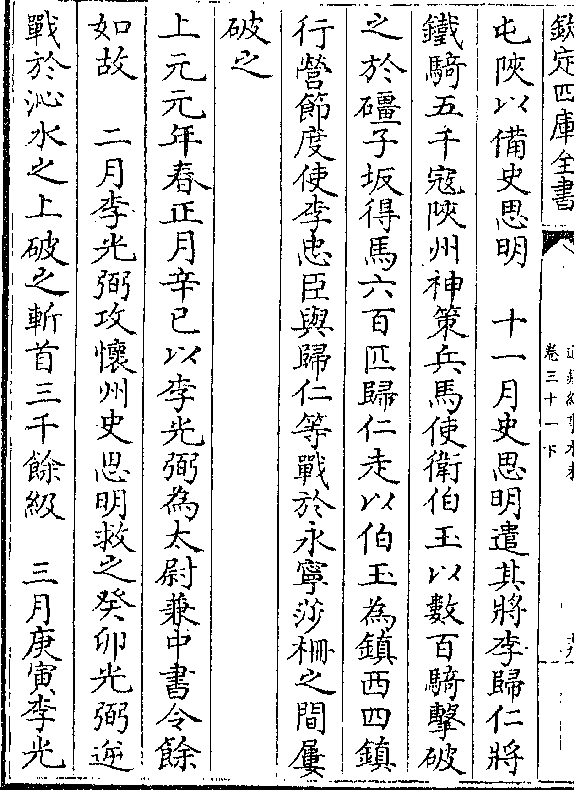 欽定四庫全書
卷三十一下
屯陜以備史思明　十一月史思明遣其將李歸仁將
鐵騎五千寇陜州神策兵馬使衛伯玉以數百騎擊破
之於礓子坂得馬六百匹歸仁走以伯玉為鎮西四鎮
行營節度使李忠臣與歸仁等戰於永寧莎柵之間屢
破之
上元元年春正月辛巳以李光弼為太尉兼中書令餘
如故　二月李光弼攻懷州史思明救之癸卯光弼逆
戰於沁水之上破之斬首三千餘級　三月庚寅李光